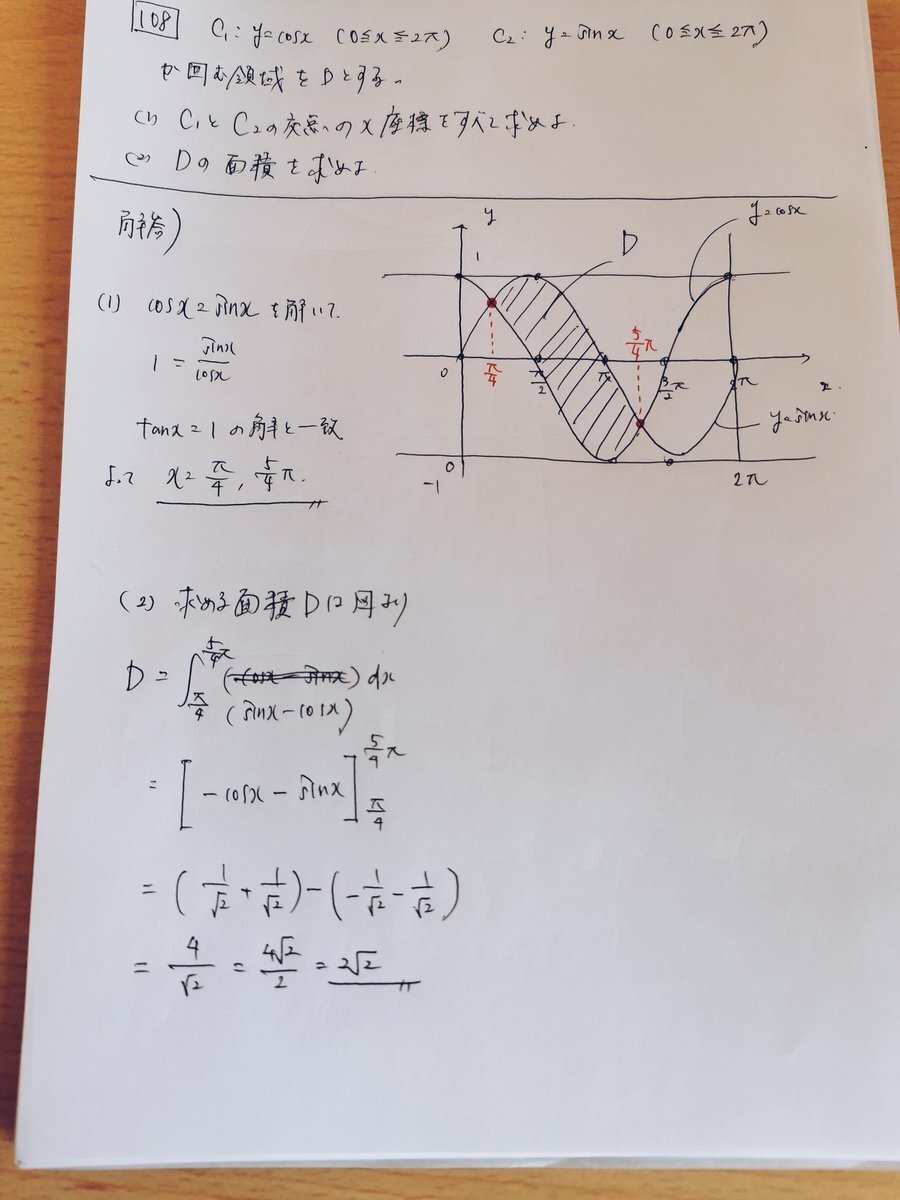 108 C₁: y=cosx (0≦x≦2π) C₂: y=sinx (0≦x≦2π)
が囲む領域をDとする。
(1) C₁とC₂の交点のx座標をすべて求めよ.
(2) Dの面積を求めよ.
解答)
(1) cosx=sinxを解いて
1 = sinx/cosx
tanx=1の解と一致
よって x= π/4, 5/4 π.
y
1
D
y=cosx
5/4 π
0
π/4
π/2
π
3/2 π
2π
x.
y=sinx
0
-1
2π
(2) 求める面積Dは図より
D = ∫_{π/4}^{5/4 π} (cosx-sinx) dx
(sinx-cosx)
= [-cosx-sinx]_{π/4}^{5/4 π}
= (1/√2 + 1/√2) - (-1/√2 - 1/√2)
= 4/√2 = 4√2/2 = 2√2